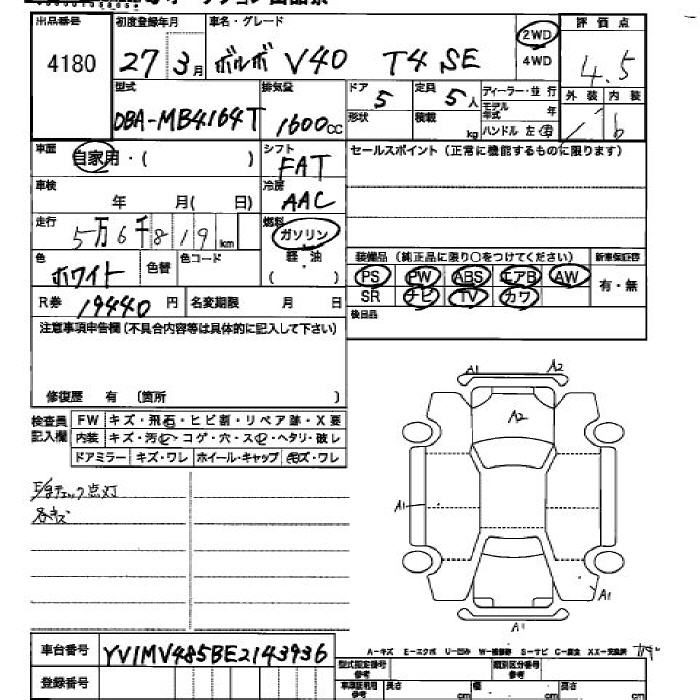 出品番号 初度登録年月 車名・グレード 2WD 評価点
4180 27 3月 ボルボ V40 T4 SE 4WD 4.5
型式 排気量 ドア 定員 ディーラー・並行 外装 内装
DBA-MB4164T 1600cc 5 5人 モデル年式 年
形状 積載 kg ハンドル 左・右 b
車歴 自家用・( ) シフト FAT セールスポイント(正常に機能するものに限ります)
車検 年 月( 日) 冷房 AAC
走行 5万6千819km 燃料 ガソリン
軽油
( )
色 ホワイト 色替 色コード
装備品(純正品に限り○をつけてください) 新車保証書
PS PW ABS エアB AW 有・無
SR ナビ TV カワ
R券 19440円 名変期限 月 日 後日品
注意事項申告欄(不具合内容等は具体的に記入して下さい)
修復歴 有 (箇所 )
検査員記入欄 FW キズ・飛石・ヒビ割・リペア跡・X要
内装 キズ・汚レ・コゲ・穴・スレ・ヘタリ・破レ
ドアミラー キズ・ワレ ホイール・キャップ キズ・ワレ
チェック点灯
各キズ
A1 A2
A2
A1
A1
A1
車台番号 YV1MV485BE2143936
A-キズ E-エクボ U-凹み W-補修跡 S-サビ C-腐食 XX-交換済
登録番号 型式指定番号 類別区分番号
参考 参考
長さ cm 幅 cm 高さ cm